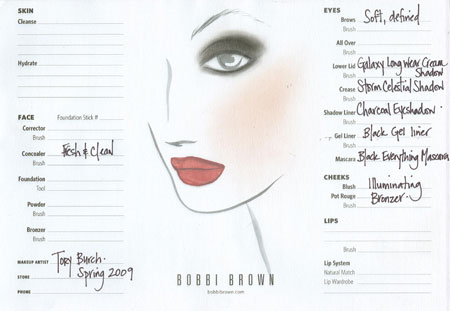 SKIN
Cleanse
Hydrate
FACE Foundation Stick #
Corrector
Brush
Concealer Fresh & Clean
Brush
Foundation
Tool
Powder
Brush
Bronzer
Brush
MAKEUP ARTIST Tory Burch.
STORE Spring 2009
PHONE
BOBBI BROWN
bobbibrown.com
EYES
Brows Soft, defined
Brush
All Over
Brush
Lower Lid Galaxy Long Wear Cream
Brush Shadow
Crease Storm Celestial Shadow
Brush
Shadow Liner Charcoal Eyeshadow.
Brush
Gel Liner Black Gel liner
Brush
Mascara Black Everything Mascara
CHEEKS
Blush Illuminating
Pot Rouge Bronzer.
Brush
LIPS
Brush
Lip System
Natural Match
Lip Wardrobe